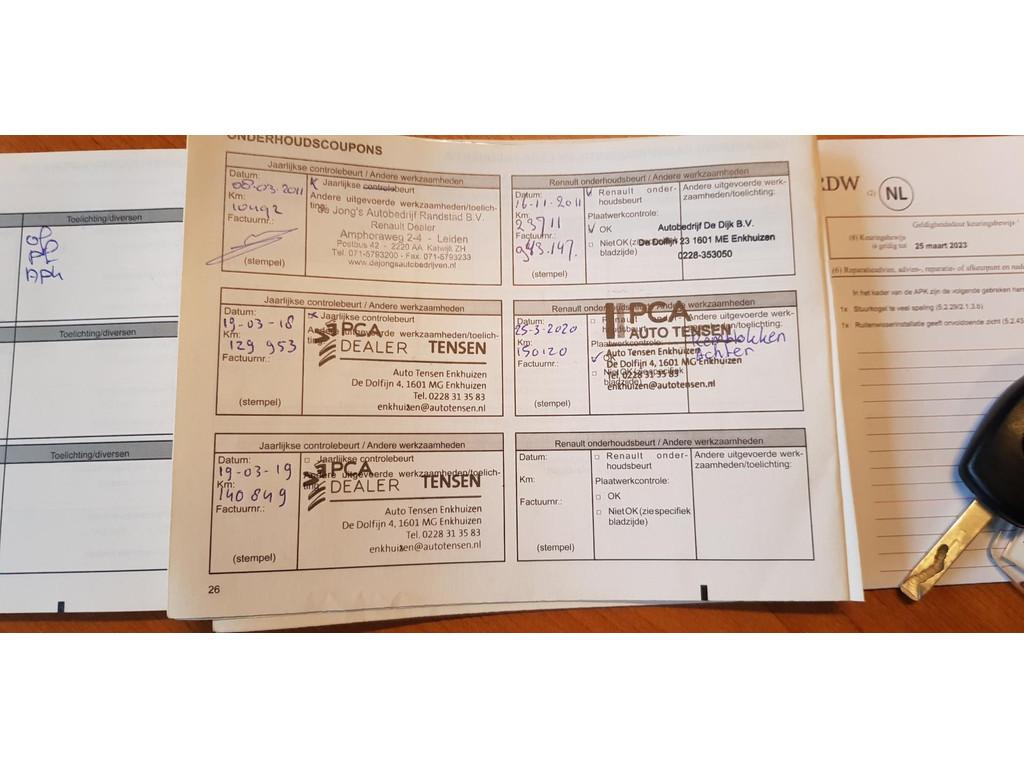 ONDERHOUDSCOUPONS
Jaarlijkse controlebeurt / Andere werkzaamheden
Datum:
08-03-2011
Km:
Factuurnr.:
(stempel)
Jaarlijkse controlebeurt
Andere uitgevoerde werkzaamheden/toelich-
ting:
de Jong's Autobedrijf Randstad B.V.
Renault Dealer
Amphoraweg 2-4 - Leiden
Postbus 42 - 2220 AA Katwijk ZH
Tel. 071-5793200 - Fax. 071-5793233
www.dejongsautobedrijven.nl
Renault onderhoudsbeurt / Andere werkzaamheden
Datum:
16-11-2011
Km:
23711
Factuurnr.:
983.147.
(stempel)
Renault onder-
houdsbeurt
Plaatwerkcontrole:
OK
Niet OK (zie specifiek
bladzijde)
Andere uitgevoerde werk-
zaamheden/toelichting:
Autobedrijf De Dijk B.V.
De Dolfijn 23 1601 ME Enkhuizen
0228-353050
Jaarlijkse controlebeurt / Andere werkzaamheden
Datum:
19-03-18
Km:
129 953
Factuurnr.:
(stempel)
Jaarlijkse controlebeurt
Andere uitgevoerde werkzaamheden/toelich-
ting:
PCA
DEALER TENSEN
Auto Tensen Enkhuizen
De Dolfijn 4, 1601 MG Enkhuizen
Tel. 0228 31 35 83
enkhuizen@autotensen.nl
Renault onderhoudsbeurt / Andere werkzaamheden
Datum:
25-3-2020
Km:
150120
Factuurnr.:
(stempel)
Renault onder-
houdsbeurt
Plaatwerkcontrole:
OK
Niet OK (zie specifiek
bladzijde)
PCA
AUTO TENSEN
Auto Tensen Enkhuizen
De Dolfijn 4, 1601 MG Enkhuizen
Tel. 0228 31 35 83
enkhuizen@autotensen.nl
Remblokken
Achter
Jaarlijkse controlebeurt / Andere werkzaamheden
Datum:
19-03-19
Km:
140849
Factuurnr.:
(stempel)
Jaarlijkse controlebeurt
Andere uitgevoerde werkzaamheden/toelich-
ting:
PCA
DEALER TENSEN
Auto Tensen Enkhuizen
De Dolfijn 4, 1601 MG Enkhuizen
Tel. 0228 31 35 83
enkhuizen@autotensen.nl
Renault onderhoudsbeurt / Andere werkzaamheden
Datum:
Km:
Factuurnr.:
(stempel)
Renault onder-
houdsbeurt
Plaatwerkcontrole:
OK
Niet OK (zie specifiek
bladzijde)
Andere uitgevoerde werk-
zaamheden/toelichting:
26
Toelichting/diversen
APK
Toelichting/diversen
Toelichting/diversen
RDW
(2) NL
Geldigheidsduur keuringsbewijs
(8) Keuringsbewijs
is geldig tot 25 maart 2023
(6) Reparatieadvies, advies-, reparatie- of afkeurpunt en
In het kader van de APK zijn de volgende gebreken
1x Stuurkogel te veel speling (5.2.29/2.1.3.b)
1x Ruitenwisserinstallatie geeft onvoldoende zicht (5.2.43